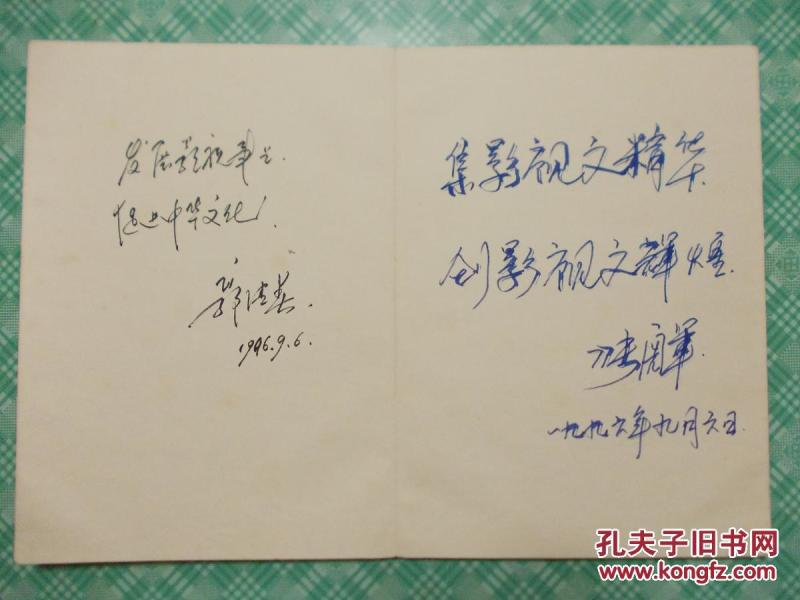 发展影视事业
促进中华文化
1996.9.6.
集影视文精华
创影视文辉煌
一九九六年九月六日
孔夫子旧书网
www.kongfz.com